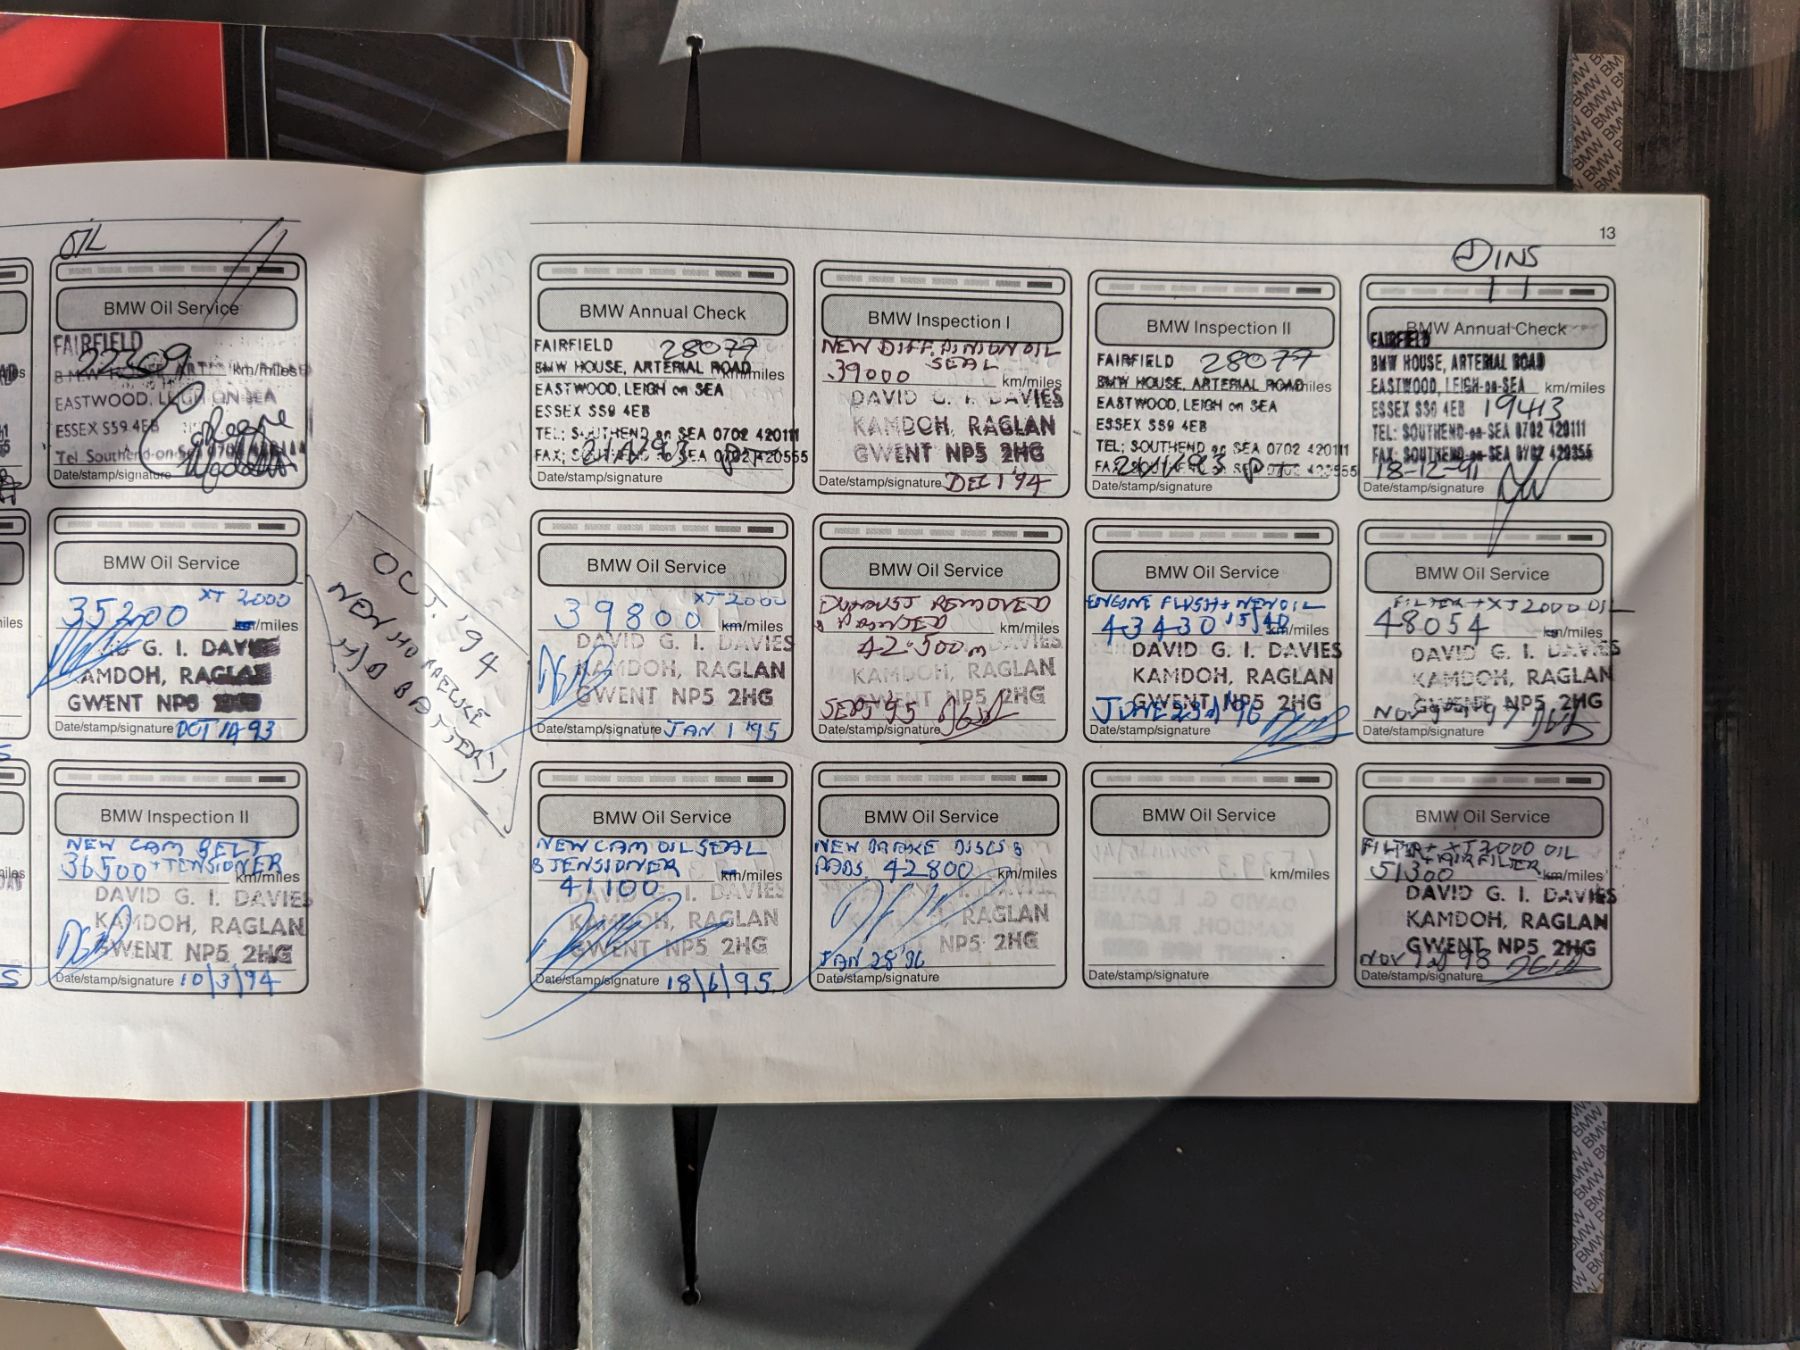 OIL
BMW Oil Service
FAIRFIELD
22309
km/miles
EASTWOOD, LEIGH ON SEA
ESSEX SS9 4EB
Tel Southend-on-Sea 0702
Date/stamp/signature
BMW Oil Service
XT 2000
35200
km/miles
G. I. DAVIES
KAMDOH, RAGLAN
GWENT NP5
Date/stamp/signature OCT 1A 93
BMW Inspection II
NEW CAM BELT
36500 + TENSIONER
km/miles
DAVID G. I. DAVIES
KAMDOH, RAGLAN
GWENT NP5 2HG
Date/stamp/signature 10/3/94
OCT. '94
NEW
H/D BATTERY
13
BMW Annual Check
FAIRFIELD 28077
BMW HOUSE, ARTERIAL ROAD
km/miles
EASTWOOD, LEIGH on SEA
ESSEX SS9 4EB
TEL: SOUTHEND on SEA 0702 420111
FAX: SOUTHEND on SEA 0702 420555
Date/stamp/signature
BMW Inspection I
NEW DIFF. PINION OIL
SEAL
39000 km/miles
DAVID G. I. DAVIES
KAMDOH, RAGLAN
GWENT NP5 2HG
Date/stamp/signature DEC 1 '94
BMW Inspection II
FAIRFIELD 28077
BMW HOUSE, ARTERIAL ROAD
miles
EASTWOOD, LEIGH on SEA
ESSEX SS9 4EB
TEL: SOUTHEND on SEA 0702 420111
420555
Date/stamp/signature
INS
BMW Annual Check
FAIRFIELD
BMW HOUSE, ARTERIAL ROAD
EASTWOOD, LEIGH-on-SEA km/miles
ESSEX SS9 4EB 19413
TEL: SOUTHEND-on-SEA 0702 420111
FAX: SOUTHEND-on-SEA 0702 420555
18-12-91
Date/stamp/signature
BMW Oil Service
XT2000
39800
km/miles
DAVID G. I. DAVIES
KAMDOH, RAGLAN
GWENT NP5 2HG
Date/stamp/signature JAN 1 '95
BMW Oil Service
EXHAUST REMOVED
& PAINTED
km/miles
42.500m
KAMDOH, RAGLAN
GWENT NP5 2HG
SEPT '95
Date/stamp/signature
BMW Oil Service
ENGINE FLUSH + NEW OIL
43430 15/40
km/miles
DAVID G. I. DAVIES
KAMDOH, RAGLAN
GWENT NP5 2HG
JUNE 23rd '96
Date/stamp/signature
BMW Oil Service
FILTER + XT2000 OIL
48054
miles
DAVID G. I. DAVIES
KAMDOH, RAGLAN
GWENT NP5 2HG
Date/stamp/signature
BMW Oil Service
NEW CAM OIL SEAL
& TENSIONER
km/miles
41100
KAMDOH, RAGLAN
GWENT NP5 2HG
Date/stamp/signature 18/6/95
BMW Oil Service
NEW BRAKE DISCS &
PADS. 42800 km/miles
RAGLAN
NP5 2HG
JAN 28 96
Date/stamp/signature
BMW Oil Service
km/miles
Date/stamp/signature
BMW Oil Service
FILTER + XT2000 OIL
+ AIR FILTER
51300
km/miles
DAVID G. I. DAVIES
KAMDOH, RAGLAN
GWENT NP5 2HG
Date/stamp/signature